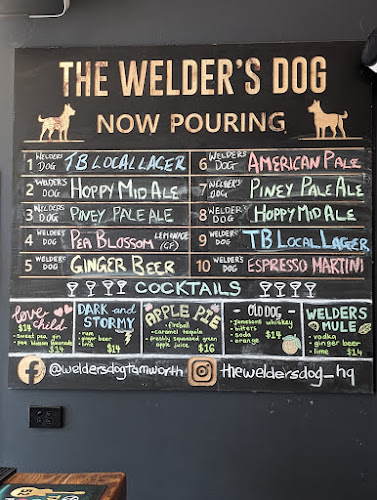 THE WELDER'S DOG
NOW POURING
1 WELDERS DOG TB LOCAL LAGER
2 WELDER'S DOG HOPPY MID ALE
3 WELDERS DOG PINEY PALE ALE
4 WELDERS DOG PEA BLOSSOM LEMONADE (GF)
5 WELDERS DOG GINGER BEER
6 WELDERS DOG AMERICAN PALE
7 WELDER'S DOG PINEY PALE ALE
8 WELDER'S DOG HOPPY MID ALE
9 WELDER'S DOG TB LOCAL LAGER
10 WELDERS DOG ESPRESSO MARTINI
COCKTAILS
love child
$14
- sweet pea gin
- pea blossom lemonade
$14
DARK and STORMY
- rum
- ginger beer
- lime $14
APPLE PIE
- fireball
- caramel tequila
- freshly squeezed green
apple juice $16
OLD DOG
- jamesons whiskey
- bitters
- soda
- orange $14
WELDERS MULE
- vodka
- ginger beer
- lime $14
@weldersdogtamworth
theweldersdog_hq